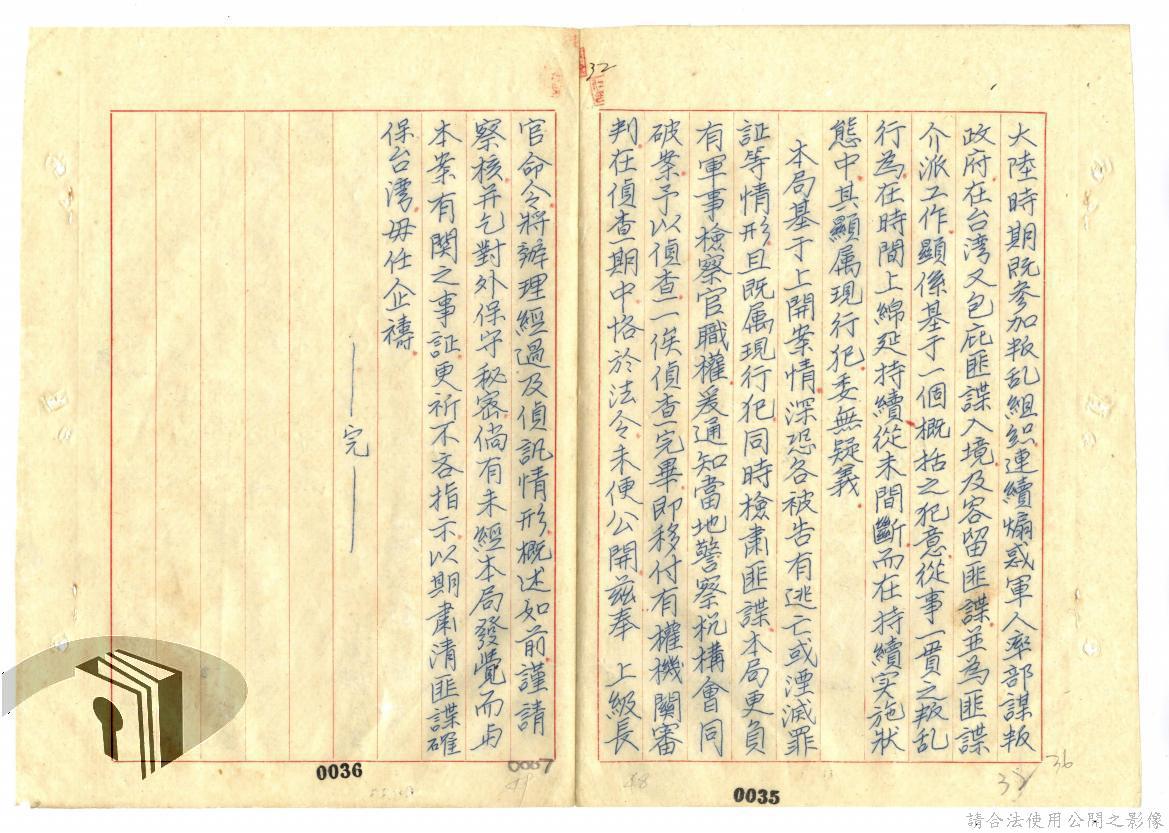 大陸時期既參加叛乱組織連續煽惑軍人率部謀叛
政府在台湾又包庇匪諜入境及容留匪諜並為匪諜
介派工作顯係基于一個概括之犯意從事一貫之叛乱
行為在時間上綿延持續從未間斷而在持續实施狀
態中其顯属現行犯委無疑義
本局基于上開案情深恐各被告有逃亡或湮滅罪
証等情形且既属現行犯同時檢肅匪諜本局更負
有軍事檢察官職權爰通知當地警察机構會同
破案予以偵查一俟偵查完畢即移付有權機関審
判在偵查期中恪於法令未便公開兹奉 上級長
官命令將辦理經過及偵訊情形概述如前謹請
察核并乞對外保守秘密倘有未經本局發覺而与
本案有関之事証更祈不吝指示以期肅清匪諜確
保台湾毋任企禱
——完——
32
0036
0037
49
48
0035
35
36
請合法使用公開之影像